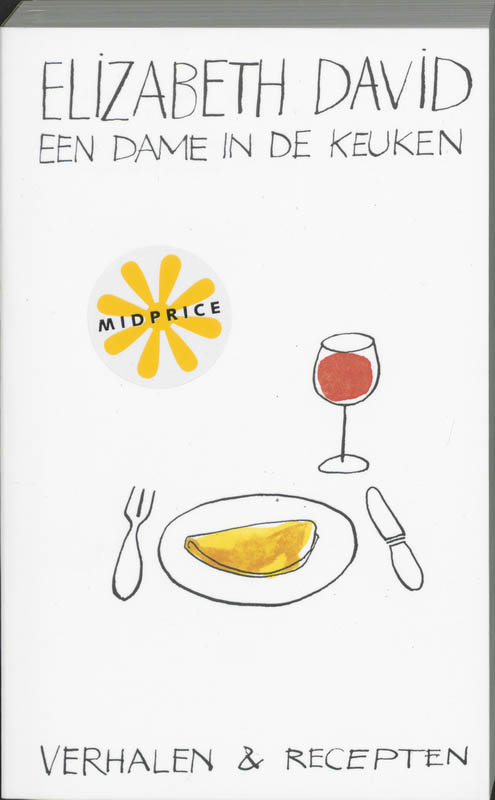 ELIZABETH DAVID
EEN DAME IN DE KEUKEN
MIDPRICE
VERHALEN & RECEPTEN